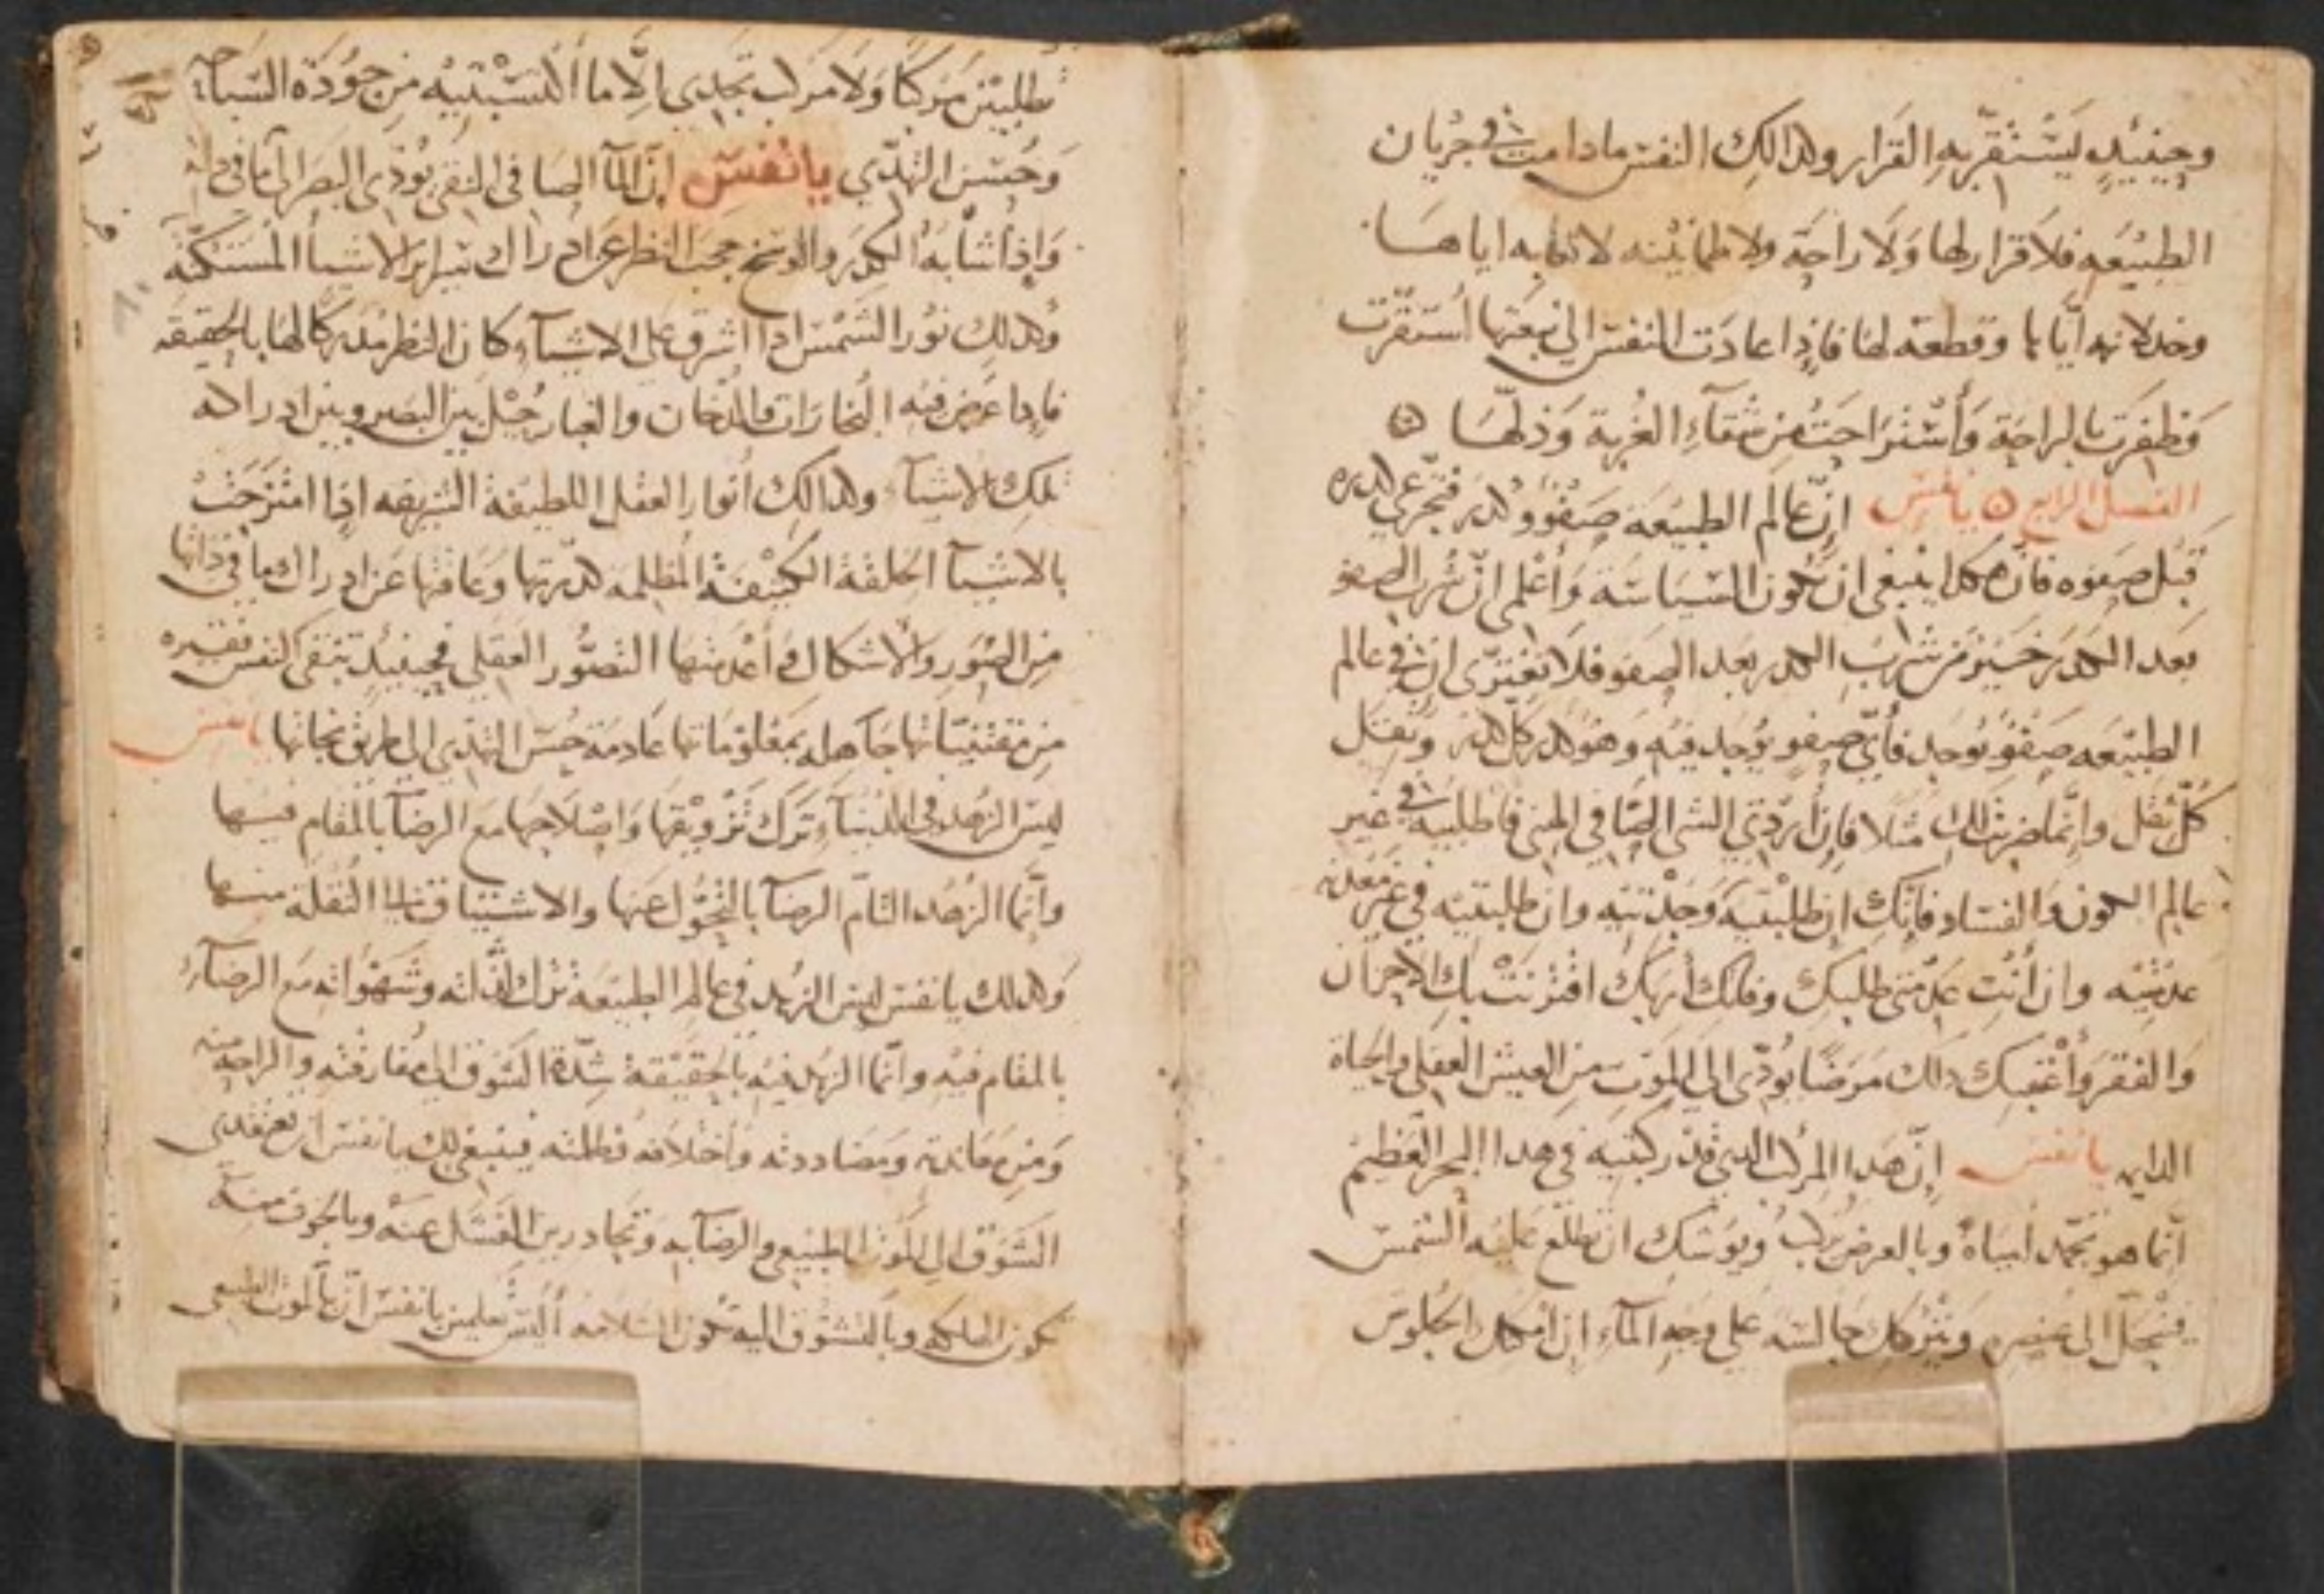 وحينيدٍ ليستقرّ به القرار وكدالك النفس مادامت في جريان
الطبيعه فلا قرار لها ولا راحة ولا طمانينه لاتعابه اياها
وخدلانه ايّاها وقطعه لها فاذا عادت النفس الي نبعتها استقرت
وظفرت بالراحة وأستراحت من شقآءِ الغربة وذلّها
الفصل الرابع يا نفس إنّ عالم الطبيعه صفوٌ وكدر فتجرعي كدره
قبل صفوه فانّ هكدا ينبغي ان تكون السياسة وأعلمي انّ شرب الصفو
بعد الكدر خيرٌ من شرب الكدر بعد الصفو فلا تغترّي انّ في عالم
الطبيعه صفوٌ يوجد فأيّ صفوٍ يوجد فيه وهو كدر كلّ كدر وثقل
كلّ ثقل وانّما ضربت لك مثلا فان أردتي الشي الصافي المني فاطلبيه في غير
عالم الكون والفساد فانّك ان طلبتيه وجدتيه وان طلبتيه في غير معدنه
عدمتيه وان أنتِ عدمتي طلبك وفاتك أربك اقترنت بك الاحزان
والفقر وأعقبك دلك مرضًا يودّي الي الموت من العيش العقلي والحياة
الدايمه يا نفس إنّ هدا المركب الدي قد ركبتيه في هدا البحر العظيم
انّما هو تجمّد امياهٌ وبالعرض ركب ويوشك ان تطلع عليه الشمس
فينحلّ الي عنصره ويتركك جالسه علي وجه المآءِ ان امكنك الجلوس
تطلبين مركبًا ولا مركب تجدي الّا ما اكتسبتيه من جودة السباحه
وحسن التهدّي يا نفس انّ المآ الصافي النقي يودّي البصر الي ما في داته
وإذا شابه الكدر والوسخ حجب النظر عن ادراك سراير الاشيا المستكنّه
وكدلك نور الشمس ادا اشرق علي الاشيآءِ كان النظر مدركًا لها بالحقيقه
فإدا عرض فيه البخارات والدخان والغبار حيل بين البصر وبين ادراك
تلك الاشيآء وكدالك أنوار العقل اللطيفة الشريفه إذا امتزجت
بالاشيآ الجلفة الكثيفة المظلمه كدّرتها وعاقتها عن ادراك ما في داتها
من الصور والاشكال وأعدمتها التصوّر العقلي فحينيدٍ تبقي النفس فقيره
من مقتنياتها جاهله بمعلوماتها عادمة حسن التهدّي الي طريق نجاتها يا نفس
ليس الزهد في الدنيآءِ ترك تزويقها وإصلاحها مع الرضآ بالمقام فيها
وإنّما الزهد التامّ الرضآ بالتحوّل عنها والاشتياق الي النقلة منها
وكدلك يا نفس ليس الزهد في عالم الطبيعة ترك لذّاته وشهواته مع الرضآءِ
بالمقام فيه وانّما الزهد فيه بالحقيقة شدّة الشوق الي مفارقته والراحة منه
ومن معاندته ومضاددته وأختلافه وظلمته فينبغي لك يا نفس ان تعتقدي
الشوق الي الموت الطبيعي والرضآ به وتحادرين الفشل عنه وبالخوف منه
تكون الهلكه وبالتشوق اليه تكون السلامه أليس تعلمين يا نفس انّ بالموت الطبيعي